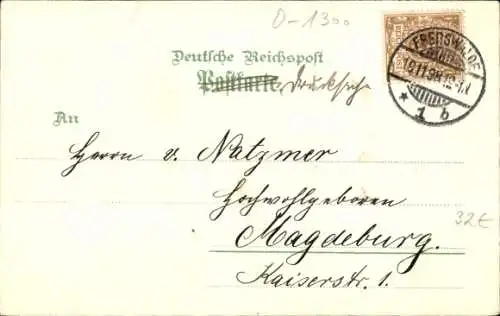 D-1300
EBERSWALDE
19.11.98.12-1N.
* 1 b
Deutsche Reichspost
Postkarte Drucksache
An
Herrn v. Natzmer
Hochwohlgeboren
32€
Magdeburg.
Kaiserstr. 1.